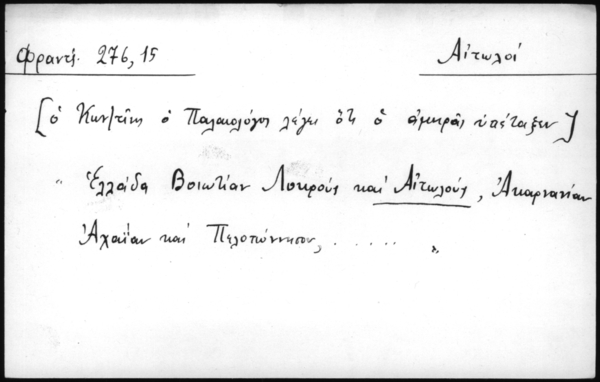 Φραντζ. 276, 15 Αἰτωλοί
[ὁ Κων/τῖνος ὁ Παλαιολόγος λέγει ὅτι ὁ ἀμηρᾶς ὑπέταξεν]
" Ἑλλάδα Βοιωτίαν Λοκρούς καί Αἰτωλούς, Ἀκαρνανίαν
Ἀχαΐαν καί Πελοπόννησον, ..... "